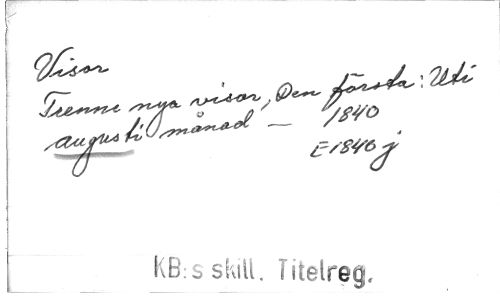 Visor
Trenne nya visor, Den första: Uti
augusti månad — 1840
E1840j
KB:s skill. Titelreg.